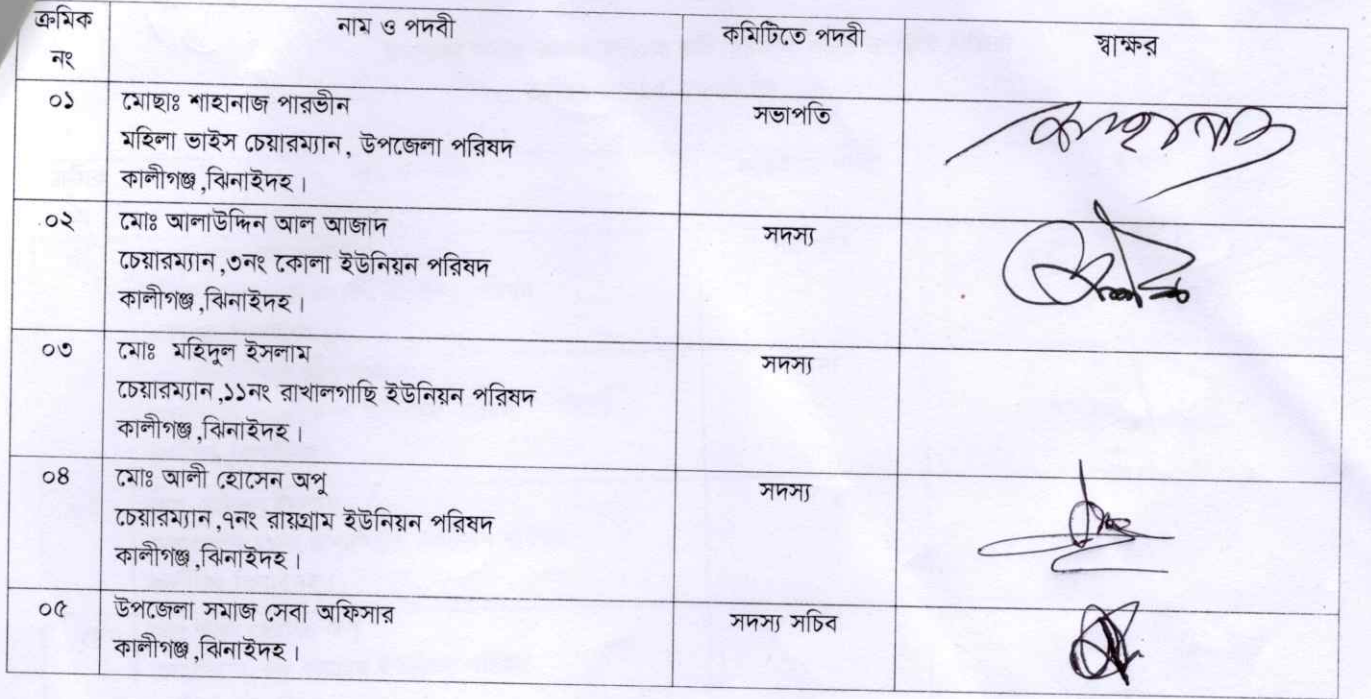 ক্রমিক নং নাম ও পদবী কমিটিতে পদবী স্বাক্ষর
০১ মোছাঃ শাহানাজ পারভীন সভাপতি
মহিলা ভাইস চেয়ারম্যান, উপজেলা পরিষদ
কালীগঞ্জ,ঝিনাইদহ।
০২ মোঃ আলাউদ্দিন আল আজাদ সদস্য
চেয়ারম্যান,৩নং কোলা ইউনিয়ন পরিষদ
কালীগঞ্জ,ঝিনাইদহ।
০৩ মোঃ মহিদুল ইসলাম সদস্য
চেয়ারম্যান,১১নং রাখালগাছি ইউনিয়ন পরিষদ
কালীগঞ্জ,ঝিনাইদহ।
০৪ মোঃ আলী হোসেন অপু সদস্য
চেয়ারম্যান,৭নং রায়গ্রাম ইউনিয়ন পরিষদ
কালীগঞ্জ,ঝিনাইদহ।
০৫ উপজেলা সমাজ সেবা অফিসার সদস্য সচিব
কালীগঞ্জ,ঝিনাইদহ।